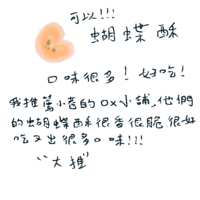 可以!!!
蝴蝶酥
口味很多! 好吃!
我推萬小舂的Ox小舖,他們
的蝴蝶酥很香很脆很好
吃又出很多口味!!!
"大推"